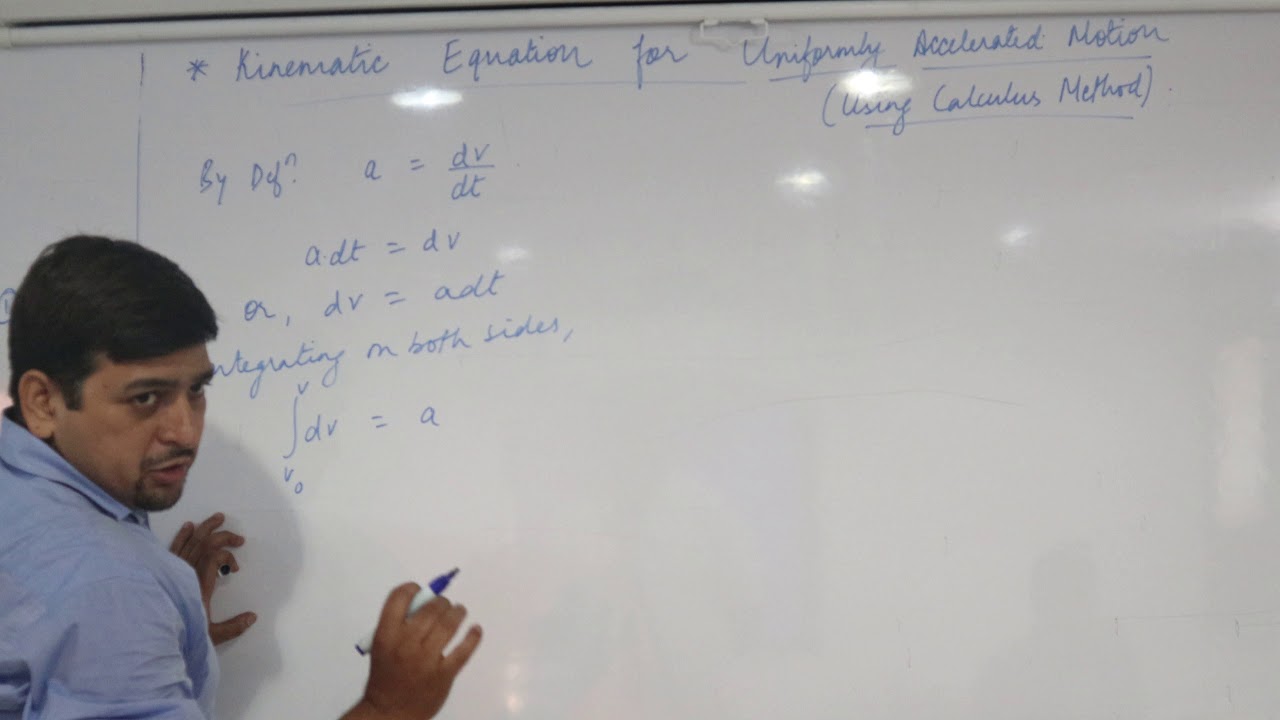 * Kinematic Equation for Uniformly Accelerated Motion
(Using Calculus Method).
By Defⁿ. a = dv/dt
a.dt = dv
or, dv = adt
ntegrating on both sides,
∫ᵥ₀ᵛ dv = a